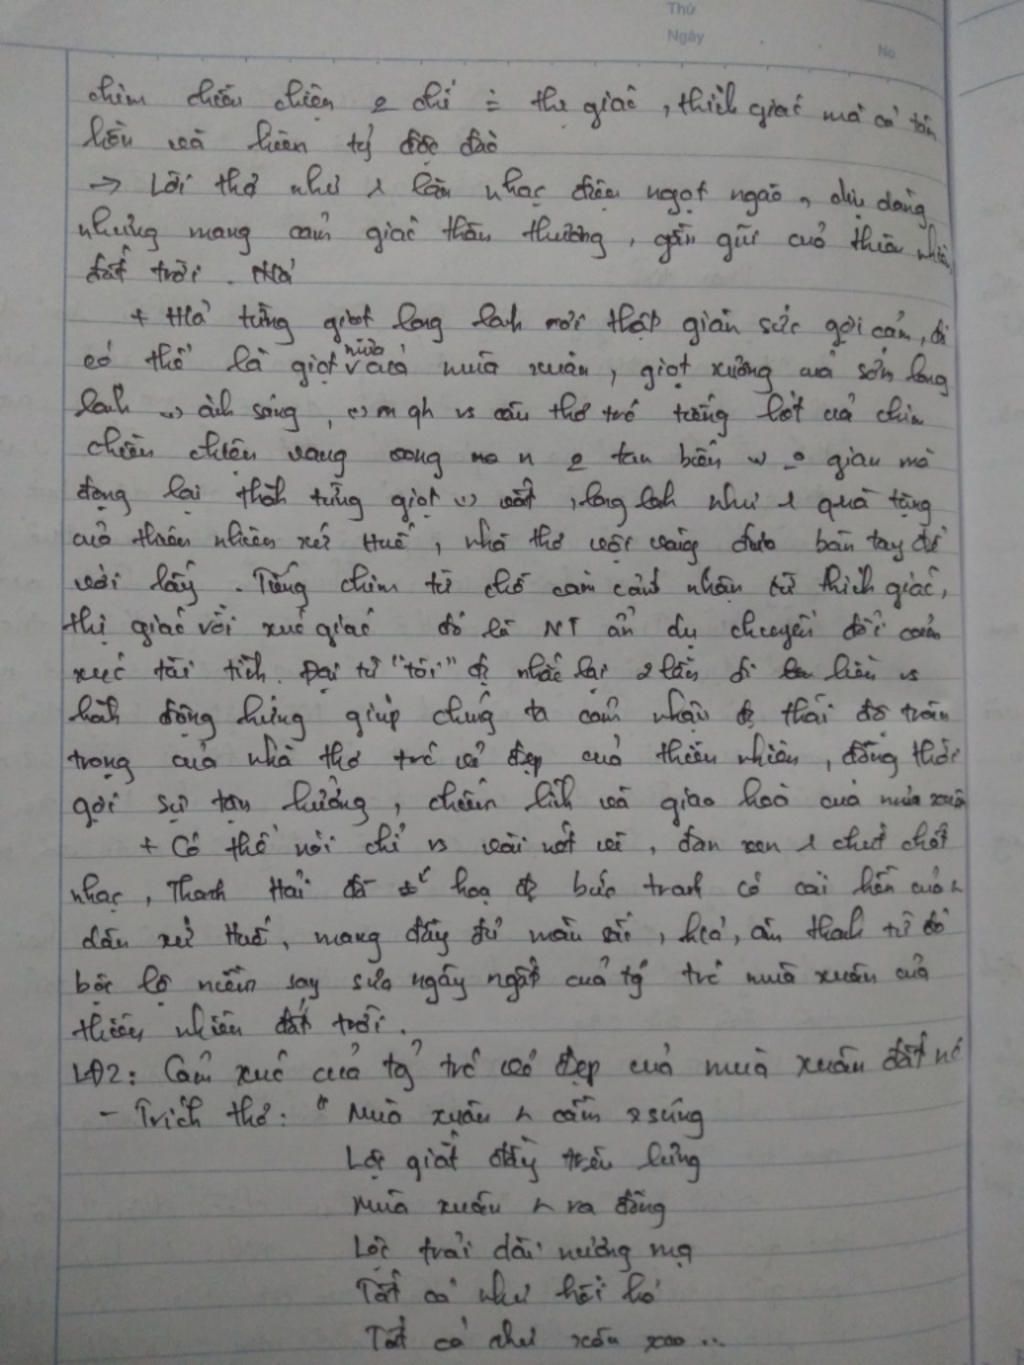 Thứ
Ngày
No
chim chiền chiện 2 chỉ = thị giác, thích giác mà cả tâm
hồn và liên tg độc đáo
→ Lời thơ như 1 làn nhạc điệu ngọt ngào, dịu dàng
nhưng mang cảm giác thân thương, gần gũi của thiên nhiên
đất trời.
+ H/ả từng giọt long lanh rơi thật giàu sức gợi cảm, đó
có thể là giọt mưa của mùa xuân, giọt xương của sớm long
lanh ánh sáng, m qh vs câu thơ trc tiếng hót của chim
chiền chiện vang vọng 2 tan biến gian mà
đọng lại thành từng giọt, long lanh như 1 quà tặng
của thiên nhiên xứ Huế, nhà thơ vội vàng đưa bàn tay để
với lấy. Tiếng chim từ chỗ cảm nhận từ thích giác,
thị giác với xúc giác đó là NT ẩn dụ chuyển đổi cảm
xúc tài tình. Đại từ "tôi" đc nhắc lại 2 lần đi liền vs
hành động hứng giúp chúng ta cảm nhận đc thái độ trân
trọng của nhà thơ trc vẻ đẹp của thiên nhiên, đồng thời
gợi sự tận hưởng, chiếm lĩnh và giao hoà của mùa xuân
+ Có thể nói chỉ vs vài nét vẽ, đan xen 1 chút chất
nhạc, Thanh Hải đã hoạ đc bức tranh có cái hồn của
dân xứ Huế, mang đầy đủ màu sắc, h/ả, âm thanh từ đó
bộc lộ niềm say sưa ngây ngất của tg trc mùa xuân của
thiên nhiên đất trời.
LĐ2: Cảm xúc của tg trc vẻ đẹp của mùa xuân đất nc
- Trích thơ: " Mùa xuân ng cầm súng
Lộc giắt đầy trên lưng
Mùa xuân ng ra đồng
Lộc trải dài nương mạ
Tất cả như hối hả
Tất cả như xôn xao...